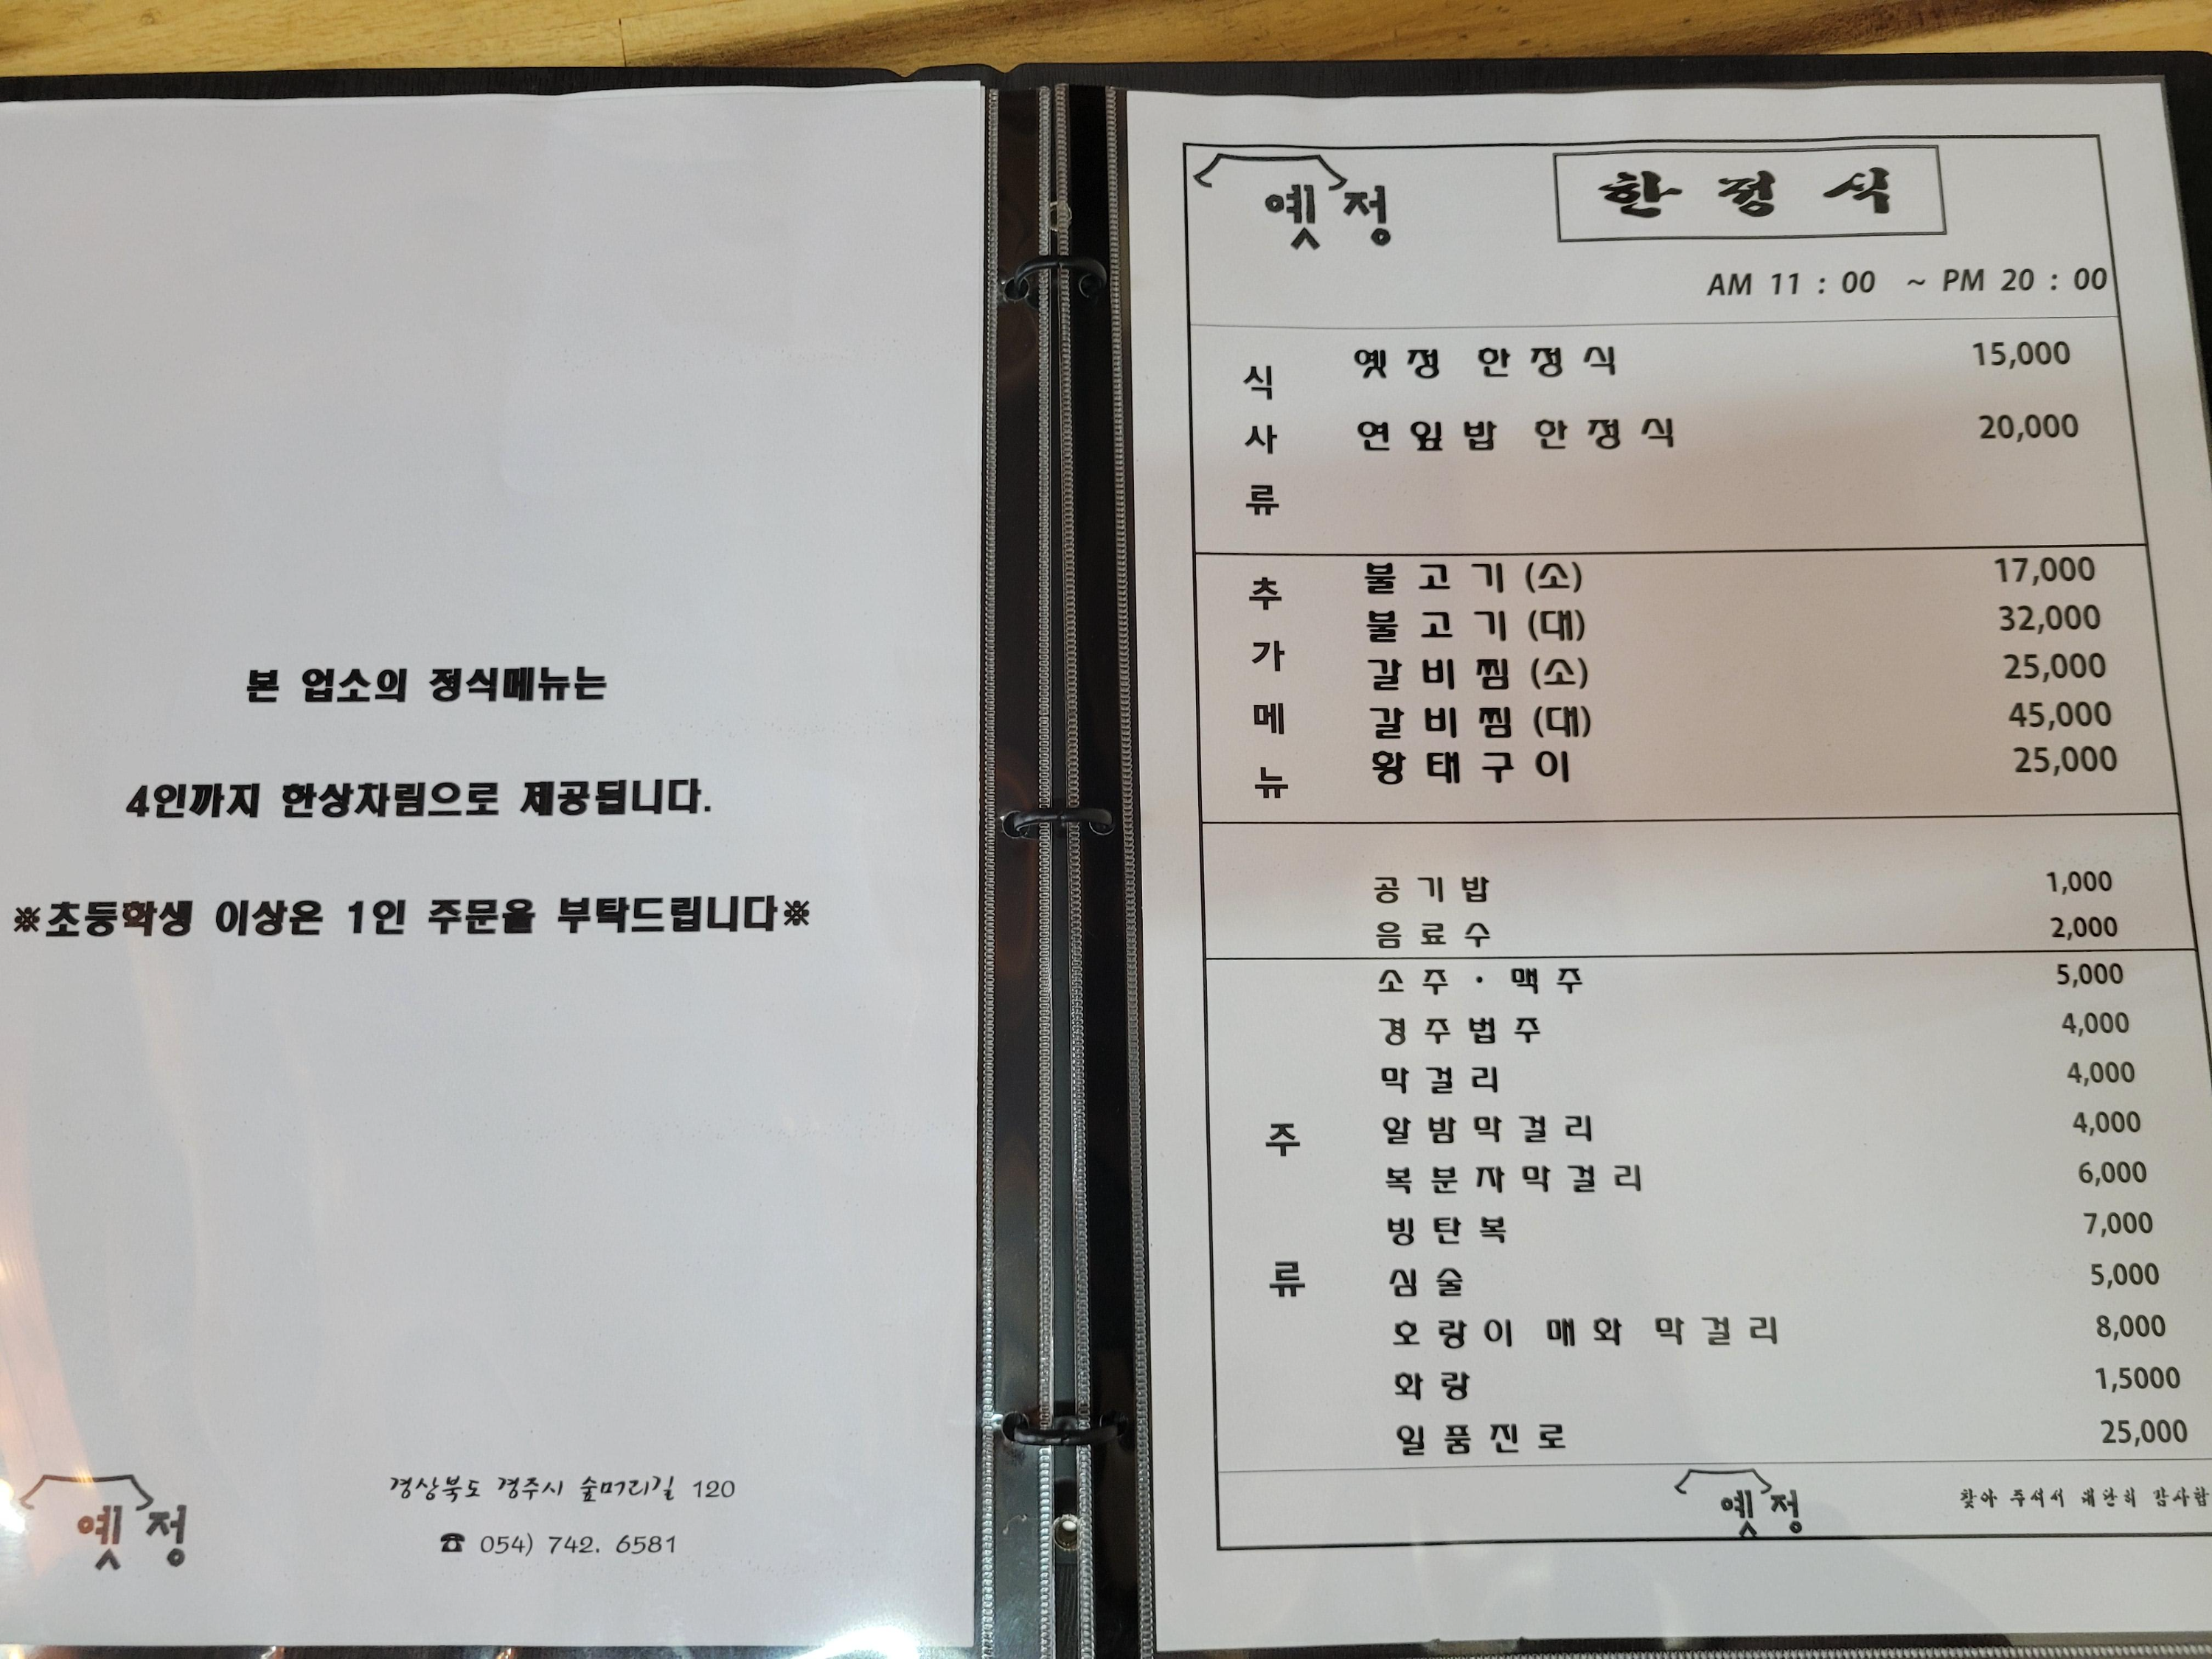 본 업소의 정식메뉴는
4인까지 한상차림으로 제공됩니다.
※초등학생 이상은 1인 주문을 부탁드립니다※
옛정
경상북도 경주시 숲머리길 120
☎ 054) 742. 6581
옛정
한정식
AM 11 : 00 ~ PM 20 : 00
식사류
옛정 한정식 15,000
연잎밥 한정식 20,000
추가메뉴
불고기(소) 17,000
불고기(대) 32,000
갈비찜(소) 25,000
갈비찜(대) 45,000
황태구이 25,000
공기밥 1,000
음료수 2,000
주류
소주·맥주 5,000
경주법주 4,000
막걸리 4,000
알밤막걸리 4,000
복분자막걸리 6,000
빙탄복 7,000
심술 5,000
호랑이 매화 막걸리 8,000
화랑 1,5000
일품진로 25,000
옛정
찾아 주셔서 대단히 감사합